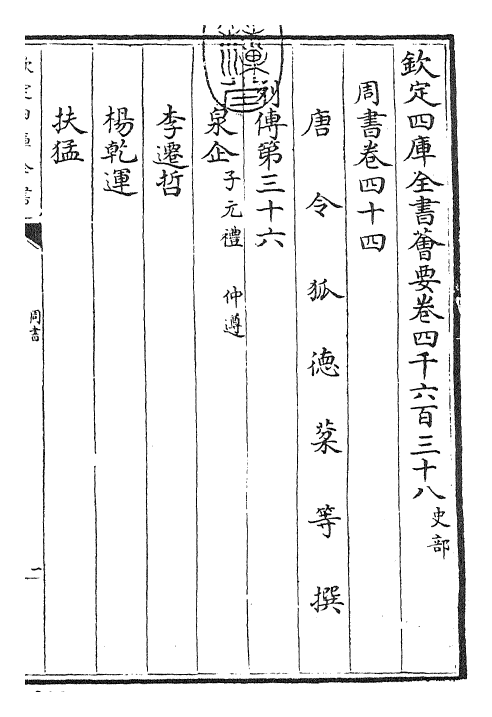 欽定四庫全書薈要卷四千六百三十八 史部
周書卷四十四
唐 令 狐 德 棻 等 撰
列傳第三十六
泉企 子元禮 仲遵
李遷哲
楊乾運
扶猛
欽定四庫全書
周書